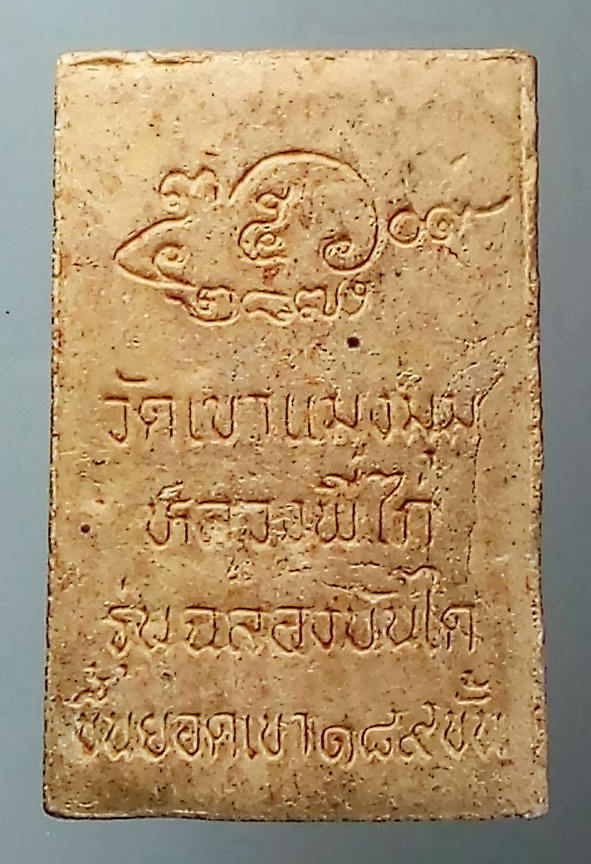 วัดเขาแมงมุม
หลวงพี่ไก่
รุ่นฉลองบันได
ขึ้นยอดเขา๑๘๙ขั้น